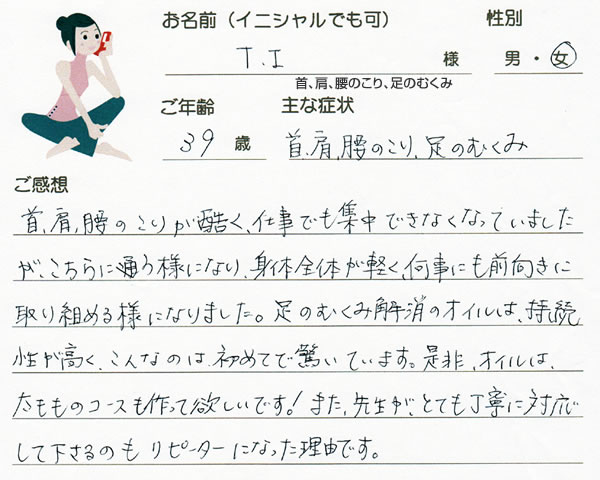 お名前（イニシャルでも可） 性別
T.I 様 男・女
首、肩、腰のこり、足のむくみ
ご年齢 主な症状
39 歳 首、肩、腰のこり、足のむくみ
ご感想
首、肩、腰のこりが酷く、仕事でも集中できなくなっていました
が、こちらに通う様になり、身体全体が軽く、何事にも前向きに
取り組める様になりました。足のむくみ解消のオイルは、持続
性が高く、こんなのは初めてで驚いています。是非、オイルは、
太もものコースも作って欲しいです！また、先生が、とても丁寧に対応
して下さるのもリピーターになった理由です。